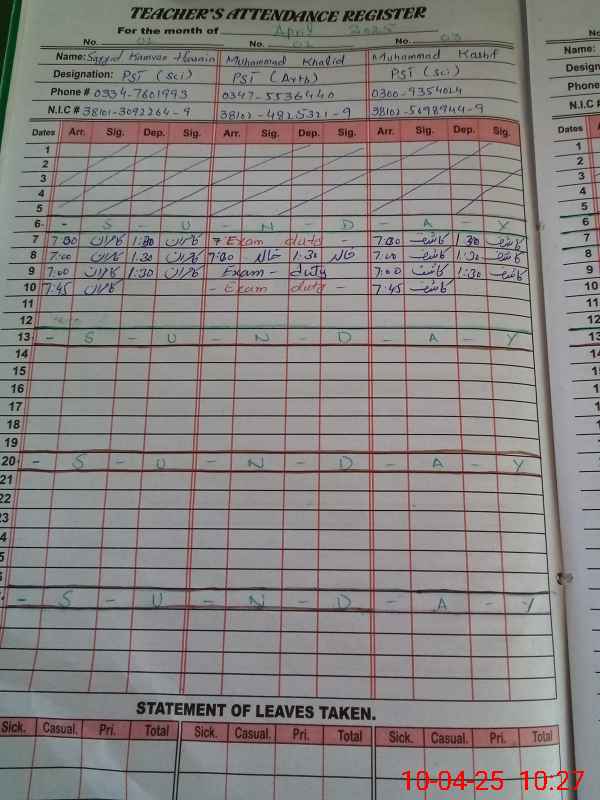 TEACHER'S ATTENDANCE REGISTER
For the month of April 2025
No. 01 No. 02 No. 03
Name: Sayyid Kamran Hussain Muhammad Khalid Muhammad Kashif Name:
Designation: PST (Sci) PST (Arts) PST (Sci)
Phone # 0334-7601993 0347-5536440 0300-9354024 Phone
N.I.C # 38101-3092264-9 38102-4825321-9 38102-5698944-9 N.I.C
Dates Arr. Sig. Dep. Sig. Arr. Sig. Dep. Sig. Arr. Sig. Dep. Sig. Dates
1 1
2 2
3 3
4 4
5 5
6 - S - U - N - D - A - Y 6
7 7:30 کامران 1:30 کامران Exam duty - 7:30 کاشف 1:30 کاشف 7
8 7:00 کامران 1:30 کامران 7:30 خالد 1:30 خالد 7:00 کاشف 1:30 کاشف 8
9 7:00 کامران 1:30 کامران Exam - duty 7:00 کاشف 1:30 کاشف 9
10 7:45 کامران - Exam duty - 7:45 کاشف 10
11 11
12 12
13 - S - U - N - D - A - Y 13
14 14
15 15
16 16
17 17
18 18
19 19
20 - S - U - N - D - A - Y 20
21 21
22 22
23 23
- S - U - N - D - A - Y
STATEMENT OF LEAVES TAKEN.
Sick. Casual. Pri. Total Sick. Casual. Pri. Total Sick. Casual. Pri. Total
10-04-25 10:27